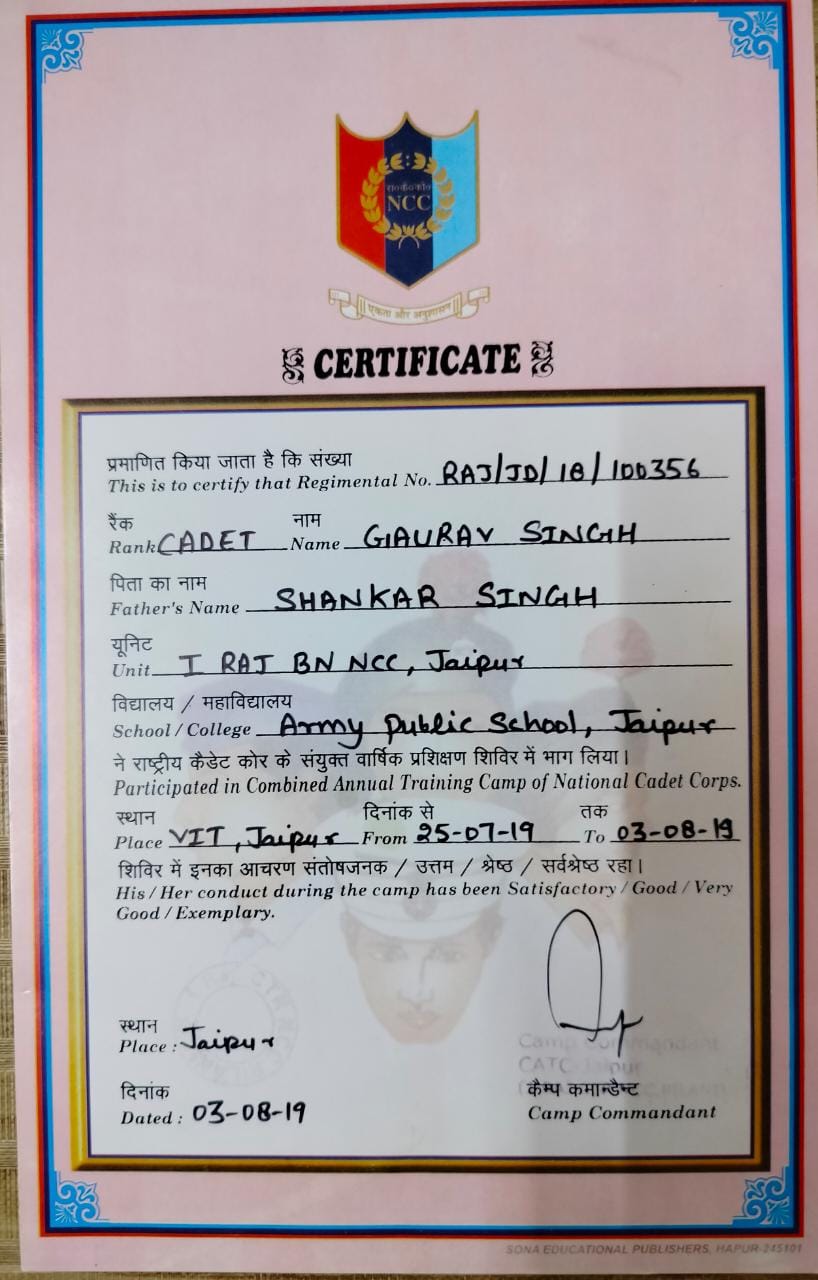 रा०कै०को०
NCC
एकता और अनुशासन
CERTIFICATE
प्रमाणित किया जाता है कि संख्या
This is to certify that Regimental No. RAJ/JD/18/100356
रैंक नाम
Rank CADET Name GAURAV SINGH
पिता का नाम
Father's Name SHANKAR SINGH
यूनिट
Unit I RAJ BN NCC, Jaipur
विद्यालय / महाविद्यालय
School / College Army Public School, Jaipur
ने राष्ट्रीय कैडेट कोर के संयुक्त वार्षिक प्रशिक्षण शिविर में भाग लिया।
Participated in Combined Annual Training Camp of National Cadet Corps.
स्थान दिनांक से तक
Place VIT, Jaipur From 25-07-19 To 03-08-19
शिविर में इनका आचरण संतोषजनक / उत्तम / श्रेष्ठ / सर्वश्रेष्ठ रहा।
His / Her conduct during the camp has been Satisfactory / Good / Very
Good / Exemplary.
स्थान
Place : Jaipur
Camp Commandant
CATC Jaipur
दिनांक
Dated : 03-08-19
कैम्प कमान्डैन्ट
Camp Commandant
SONA EDUCATIONAL PUBLISHERS, HAPUR-245101